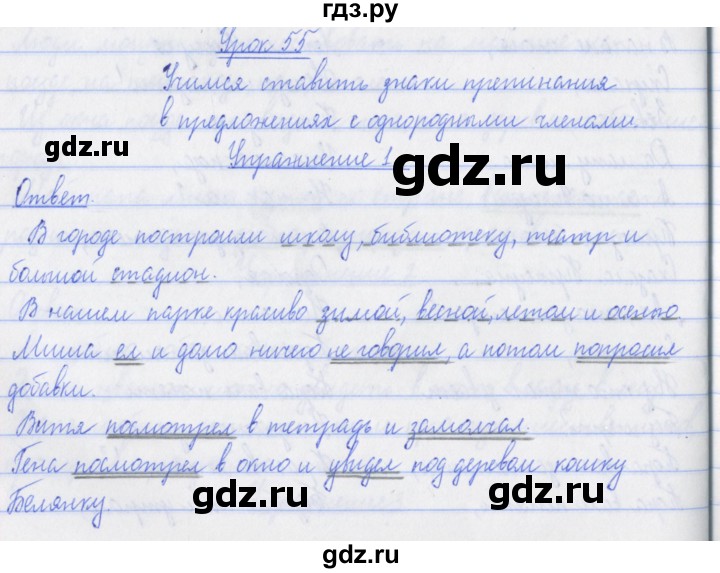 гдз.ру
Урок 55
Учимся ставить знаки препинания
в предложениях с однородными членами.
gdz.ru gdz.ru
Упражнение 1
Ответ.
В городе построили школу, библиотеку, театр и
большой стадион.
В нашем парке красиво зимой, весной, летом и осенью.
gdz.ru gdz.ru
Миша ел и долго ничего не говорил, а потом попросил
добавки.
Витя посмотрел в тетрадь и замолчал.
Гена посмотрел в окно и увидел под деревом кошку
Белянку.
gdz.ru gdz.ru
gdz.ru